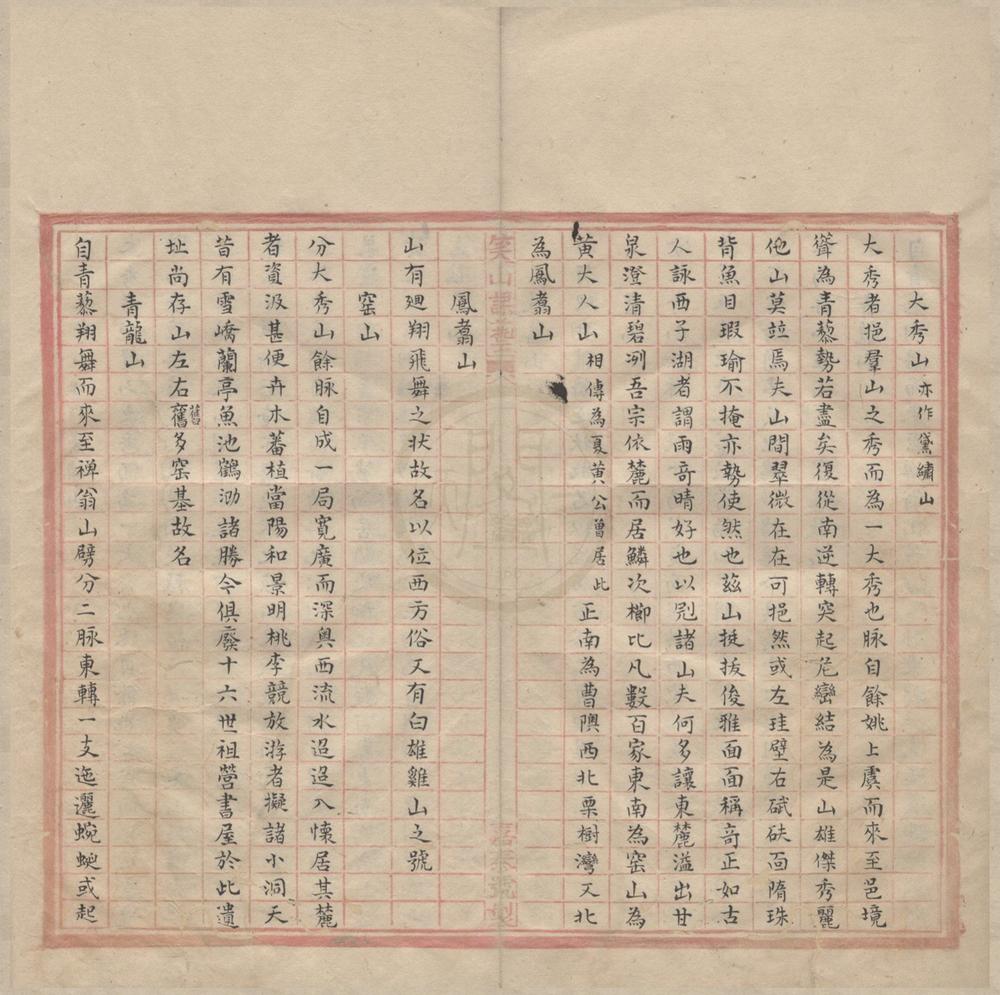 大秀山亦作黛繡山
大秀者挹羣山之秀而為一大秀也脉自餘姚上虞而來至邑境
聳為青藜勢若盡矣復從南逆轉突起危巒結為是山雄傑秀麗
他山莫竝焉夫山間翠微在在可挹然或左珪璧右碔砆面隋珠
背魚目瑕瑜不掩亦勢使然也茲山挺拔俊雅面面稱竒正如古
人詠西子湖者謂雨竒晴好也以視諸山夫何多讓東麓溢出甘
泉澄清碧冽吾宗依麓而居鱗次櫛比凡數百家東南為窑山為
黄大人山相傳為夏黄公曾居此正南為曹隩西北栗樹灣又北
為鳳翥山
鳳翥山
山有廻翔飛舞之状故名以位西方俗又有白雄雞山之號
窑山
分大秀山餘脉自成一局寛廣而深奥西流水迢迢入懷居其麓
者資汲甚便卉木蕃植當陽和景明桃李競放游者擬諸小洞天
昔有雪嶠蘭亭魚池鶴泐諸勝今俱廢十六世祖營書屋於此遺
址尚存山左右舊舊多窑基故名
青龍山
自青藜翔舞而來至禅翁山劈分二脉東轉一支迤邐蜿蜒或起